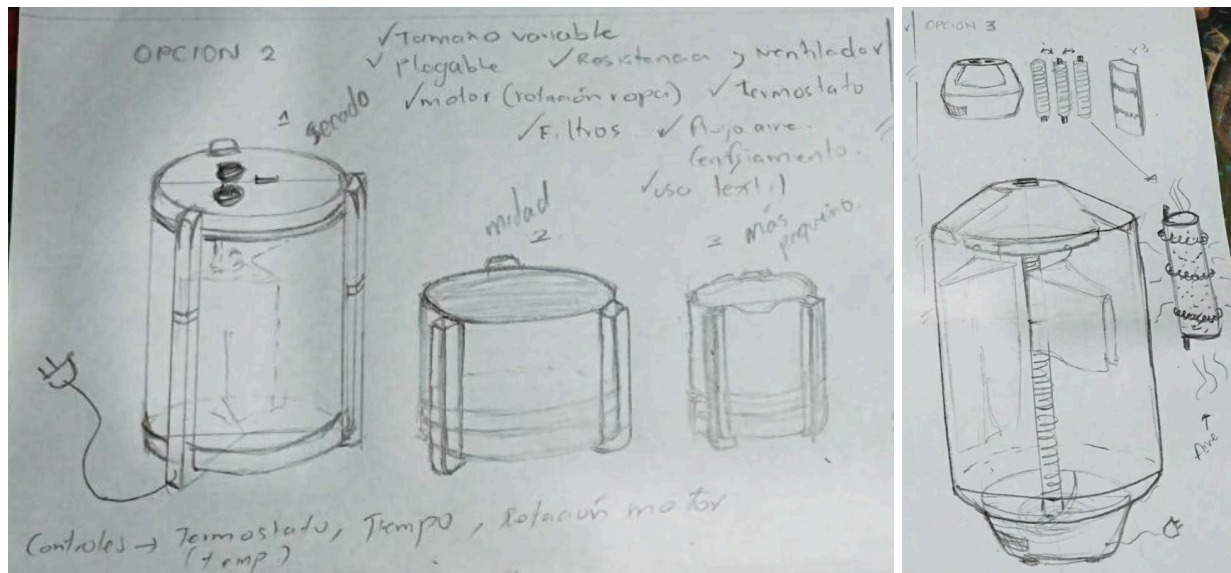 OPCION 2
✓Tamaño variable
✓ Plegable ✓ Resistencia y ventilador
✓motor (rotación ropa) ✓ Termostato
✓Filtros ✓ flujo aire.
✓uso textil
1
mitad
2
más
pequeño.
Controles → Termostato, Tiempo, Rotación motor
(temp)
OPCION 3
x3
Aire